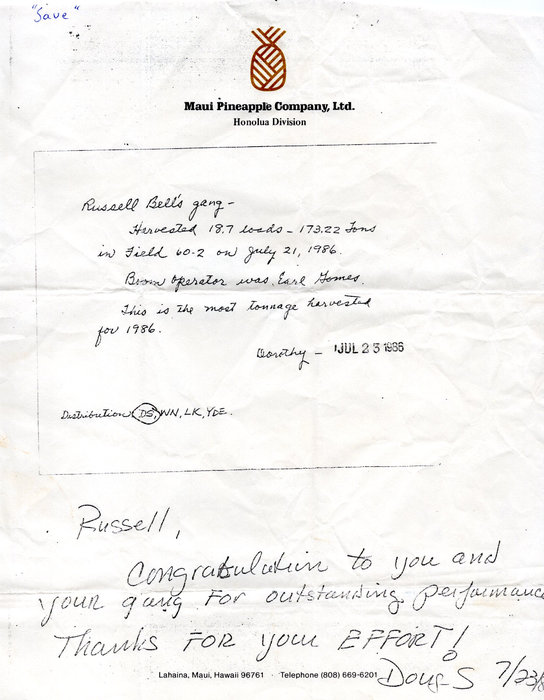 "Save"
Maui Pineapple Company, Ltd.
Honolua Division
Russell Bell's gang -
Harvested 18.7 loads - 173.22 Tons
in Field 60-2 on July 21, 1986.
Boom operator was Earl Gomes.
This is the most tonnage harvested
for 1986.
Dorothy - JUL 23 1986
Distribution: DS, WN, LK, YDE.
Russell,
Congratulation to you and
your gang for outstanding performance
Thanks for your EFFORT!
Lahaina, Maui, Hawaii 96761 · Telephone (808) 669-6201
Doug S 7/23/